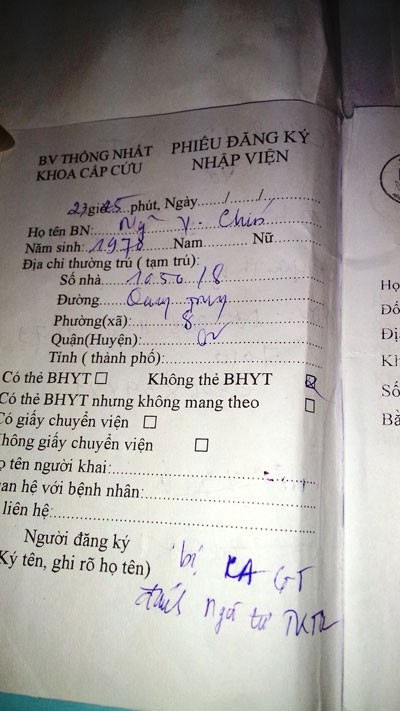 BV THỐNG NHẤT
KHOA CẤP CỨU
PHIẾU ĐĂNG KÝ
NHẬP VIỆN
giờ 25 phút, Ngày....../....../......
Họ tên BN: V.
Năm sinh: 1978 Nam Nữ
Địa chỉ thường trú ( tạm trú):
Số nhà 1050/8
Đường Quang Trung
Phường(xã): 8
Quận(Huyện): GV
Tỉnh ( thành phố):
Có thẻ BHYT ☐ Không thẻ BHYT ☒
Có thẻ BHYT nhưng không mang theo ☐
Có giấy chuyển viện ☐
hông giấy chuyển viện ☐
ọ tên người khai:
an hệ với bệnh nhân:
liên hệ:
Người đăng ký
Ký tên, ghi rõ họ tên)
bị CA GT
đánh ngã tư
Họ
Đố
Đị
Kh
Số
Bằ